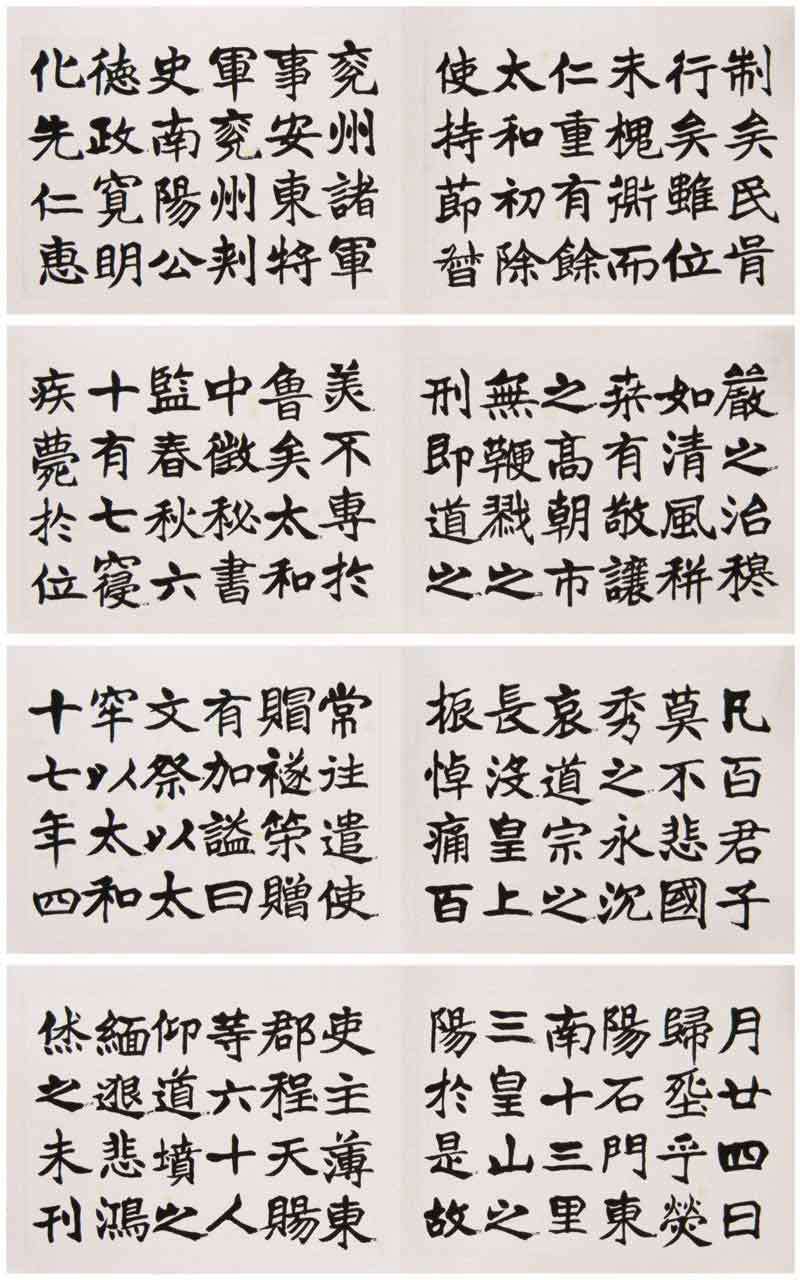 制矣民胥
行矣雖位
未槐衡而
仁重有餘
太和初除
使持節督
兖州諸軍
事安東將
軍兖州刺
史南陽公
德政寬明
化先仁惠
嚴之治穆
如清風耕
桑有敬讓
之高朝市
無鞭戮之
刑即道之
美不專於
魯矣太和
中徵秘書
監春秋六
十有七寢
疾薨於位
凡百君子
莫不悲國
秀之永沉
哀道宗之
長沒皇上
振悼痛百
常往遣使
賵襚策贈
有加謚曰
文祭以太
牢以太和
十七年四
月廿四日
歸塟乎熒
陽石門東
南十三里
三皇山之
陽於是故
吏主薄東
郡程天賜
等六十人
仰道墳之
緬邈悲鴻
休之未刊